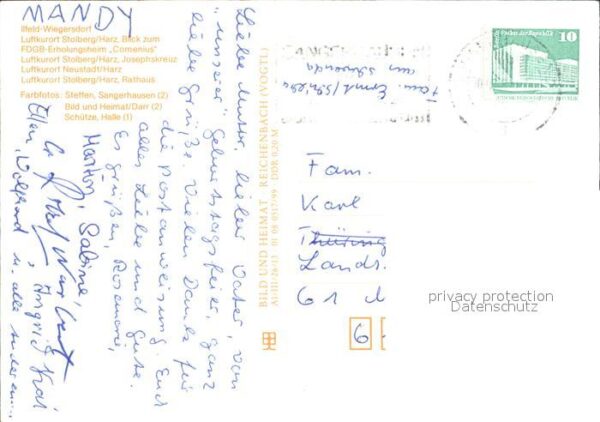 MANDY
Ilfeld-Wiegersdorf
Luftkurort Stolberg/Harz, Blick zum
FDGB-Erholungsheim „Comenius"
Luftkurort Stolberg/Harz, Josephskreuz
Luftkurort Neustadt/Harz
Luftkurort Stolberg/Harz, Rathaus
Farbfotos: Steffen, Sangerhausen (2)
Bild und Heimat/Darr (2)
Schütze, Halle (1)
Liebe Mutter, lieber Vater, von
"unserer" Geburtstagsfeier, ganz
liebe Grüße. Vielen Dank für
die Postanweisung. Euch
alles Liebe und Gute.
Es grüßen, Rosemarie,
Marion, Sabine,
Ingrid
Ellen, u. alle anderen...
BILD UND HEIMAT REICHENBACH (VOGTL)
A1/III/26/13 01 08 0517/99 DDR 0,20 M
Fam. Ernst
10
Fam.
Karl
Thüring
Lands.
61
6
privacy protection
Datenschutz